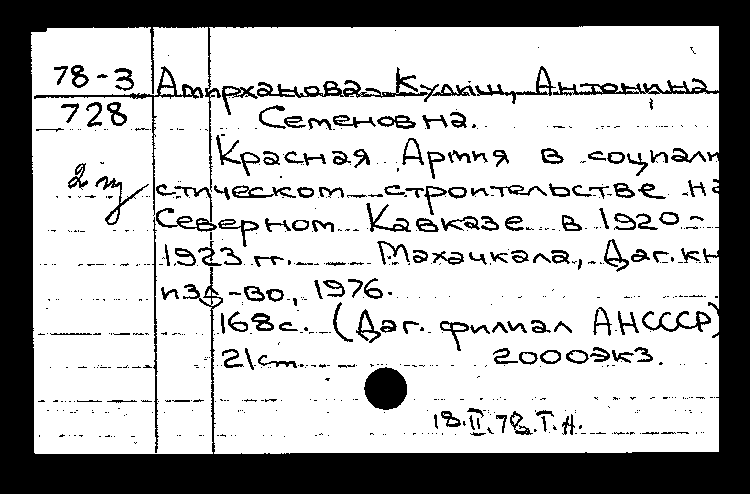 78-3 Амирханова-Кулиш, Антонина
728 Семеновна.
Красная Армия в социали
стическом строительстве на
Северном Кавказе в 1920-
1923 гг. Махачкала, Даг. кн
изд-во, 1976.
168 с. (Даг. филиал АН СССР)
21 см 2000 экз.
18.II.78. Т.А.